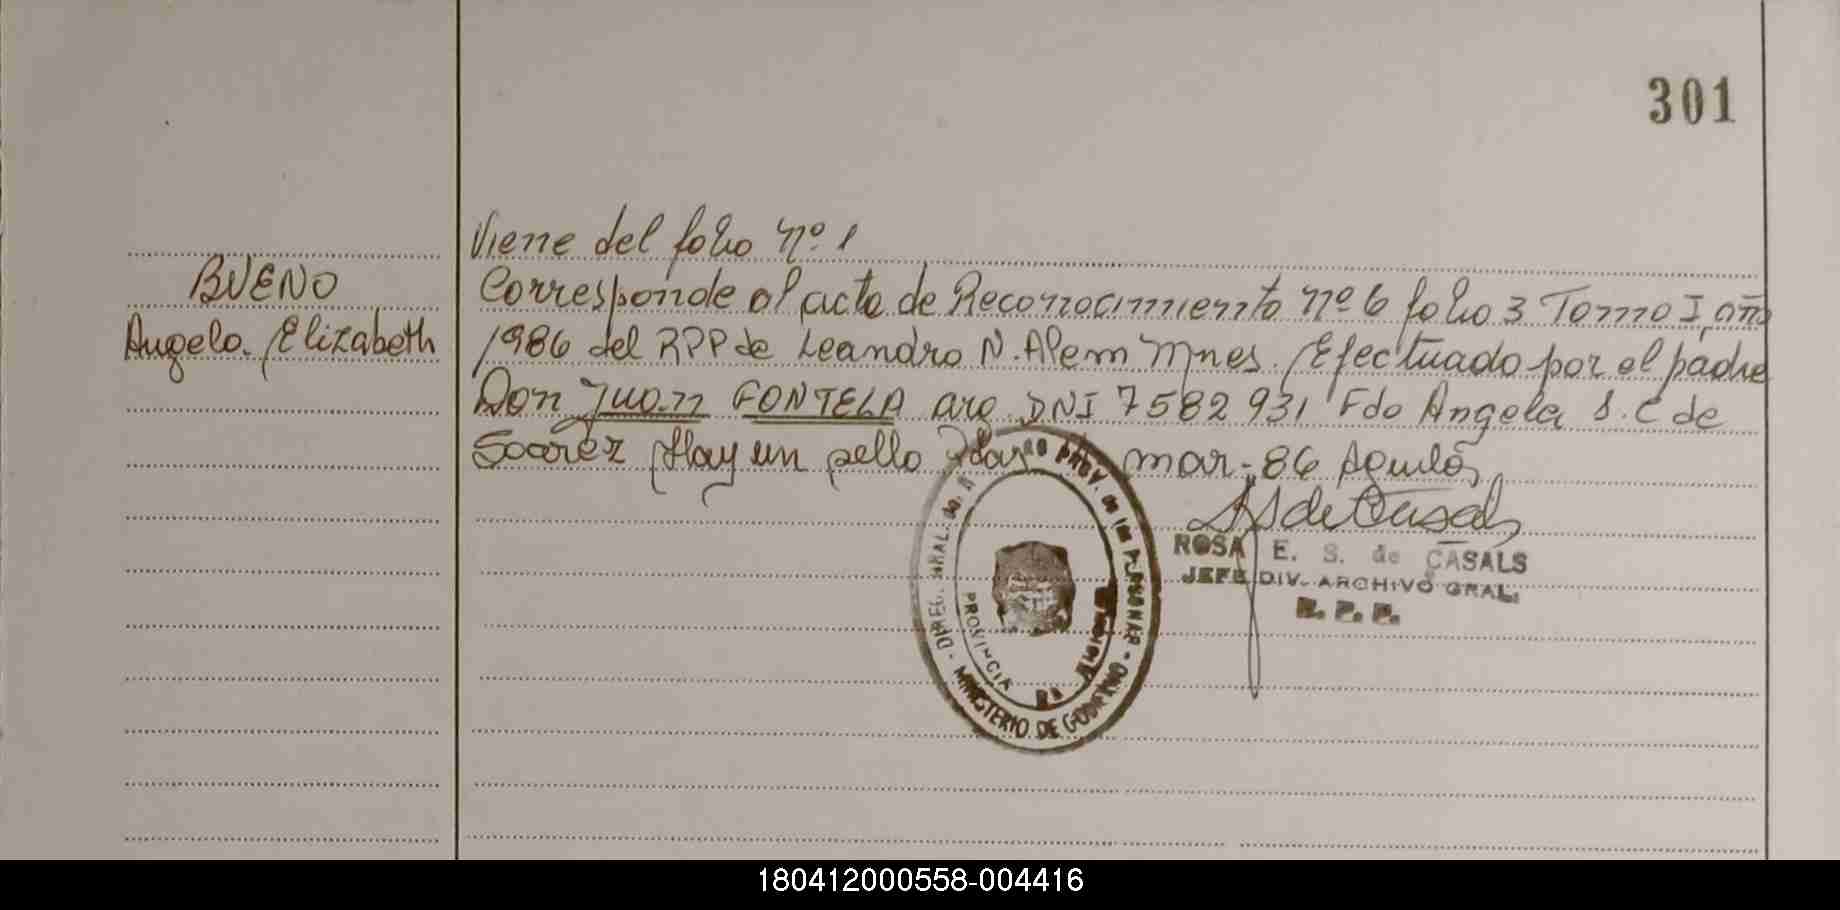 301
Viene del folio Nº 1
BUENO
Angela. Elizabeth
Corresponde al acta de Reconocimiento nº 6 folio 3 Tomo I, año
1986 del RPP de Leandro N. Alem Mnes. Efectuado por el padre
Don Juan FONTELA arg. DNI 7582931 Fdo Angela S. C de
Soarez Hay un sello mar-86
ROSA E. S. de CASALS
JEFE DIV. ARCHIVO GRAL.
R. P. P.
DIREC. GRAL. PROV. DE LAS PERSONAS - MINISTERIO DE GOBIERNO
PROVINCIA DE MISIONES
180412000558-004416